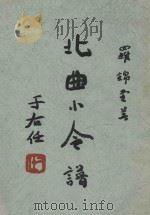 羅錦堂著
北曲小令譜
于右任